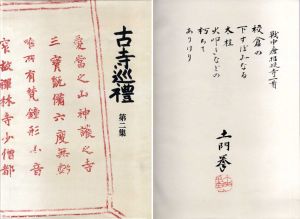 古寺巡禮
第二集
愛當之山神護之寺
三寶既備六度無虧
唯有鐘形小音
窄故禪林寺少僧都
戦中唐招提寺一首
校倉の
下すぼみなる
木柱
火叩きなどの
朽ちて
ありけり
土門拳